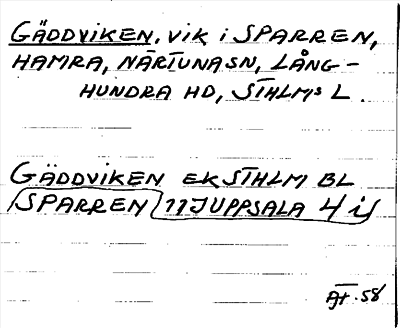 GÄDDVIKEN, VIK I SPARREN,
HAMRA, NÄRTUNA SN, LÅNG-
HUNDRA HD, STHLMS L.
GÄDDVIKEN EK STHLM BL
SPARREN 11J UPPSALA 4 i
58